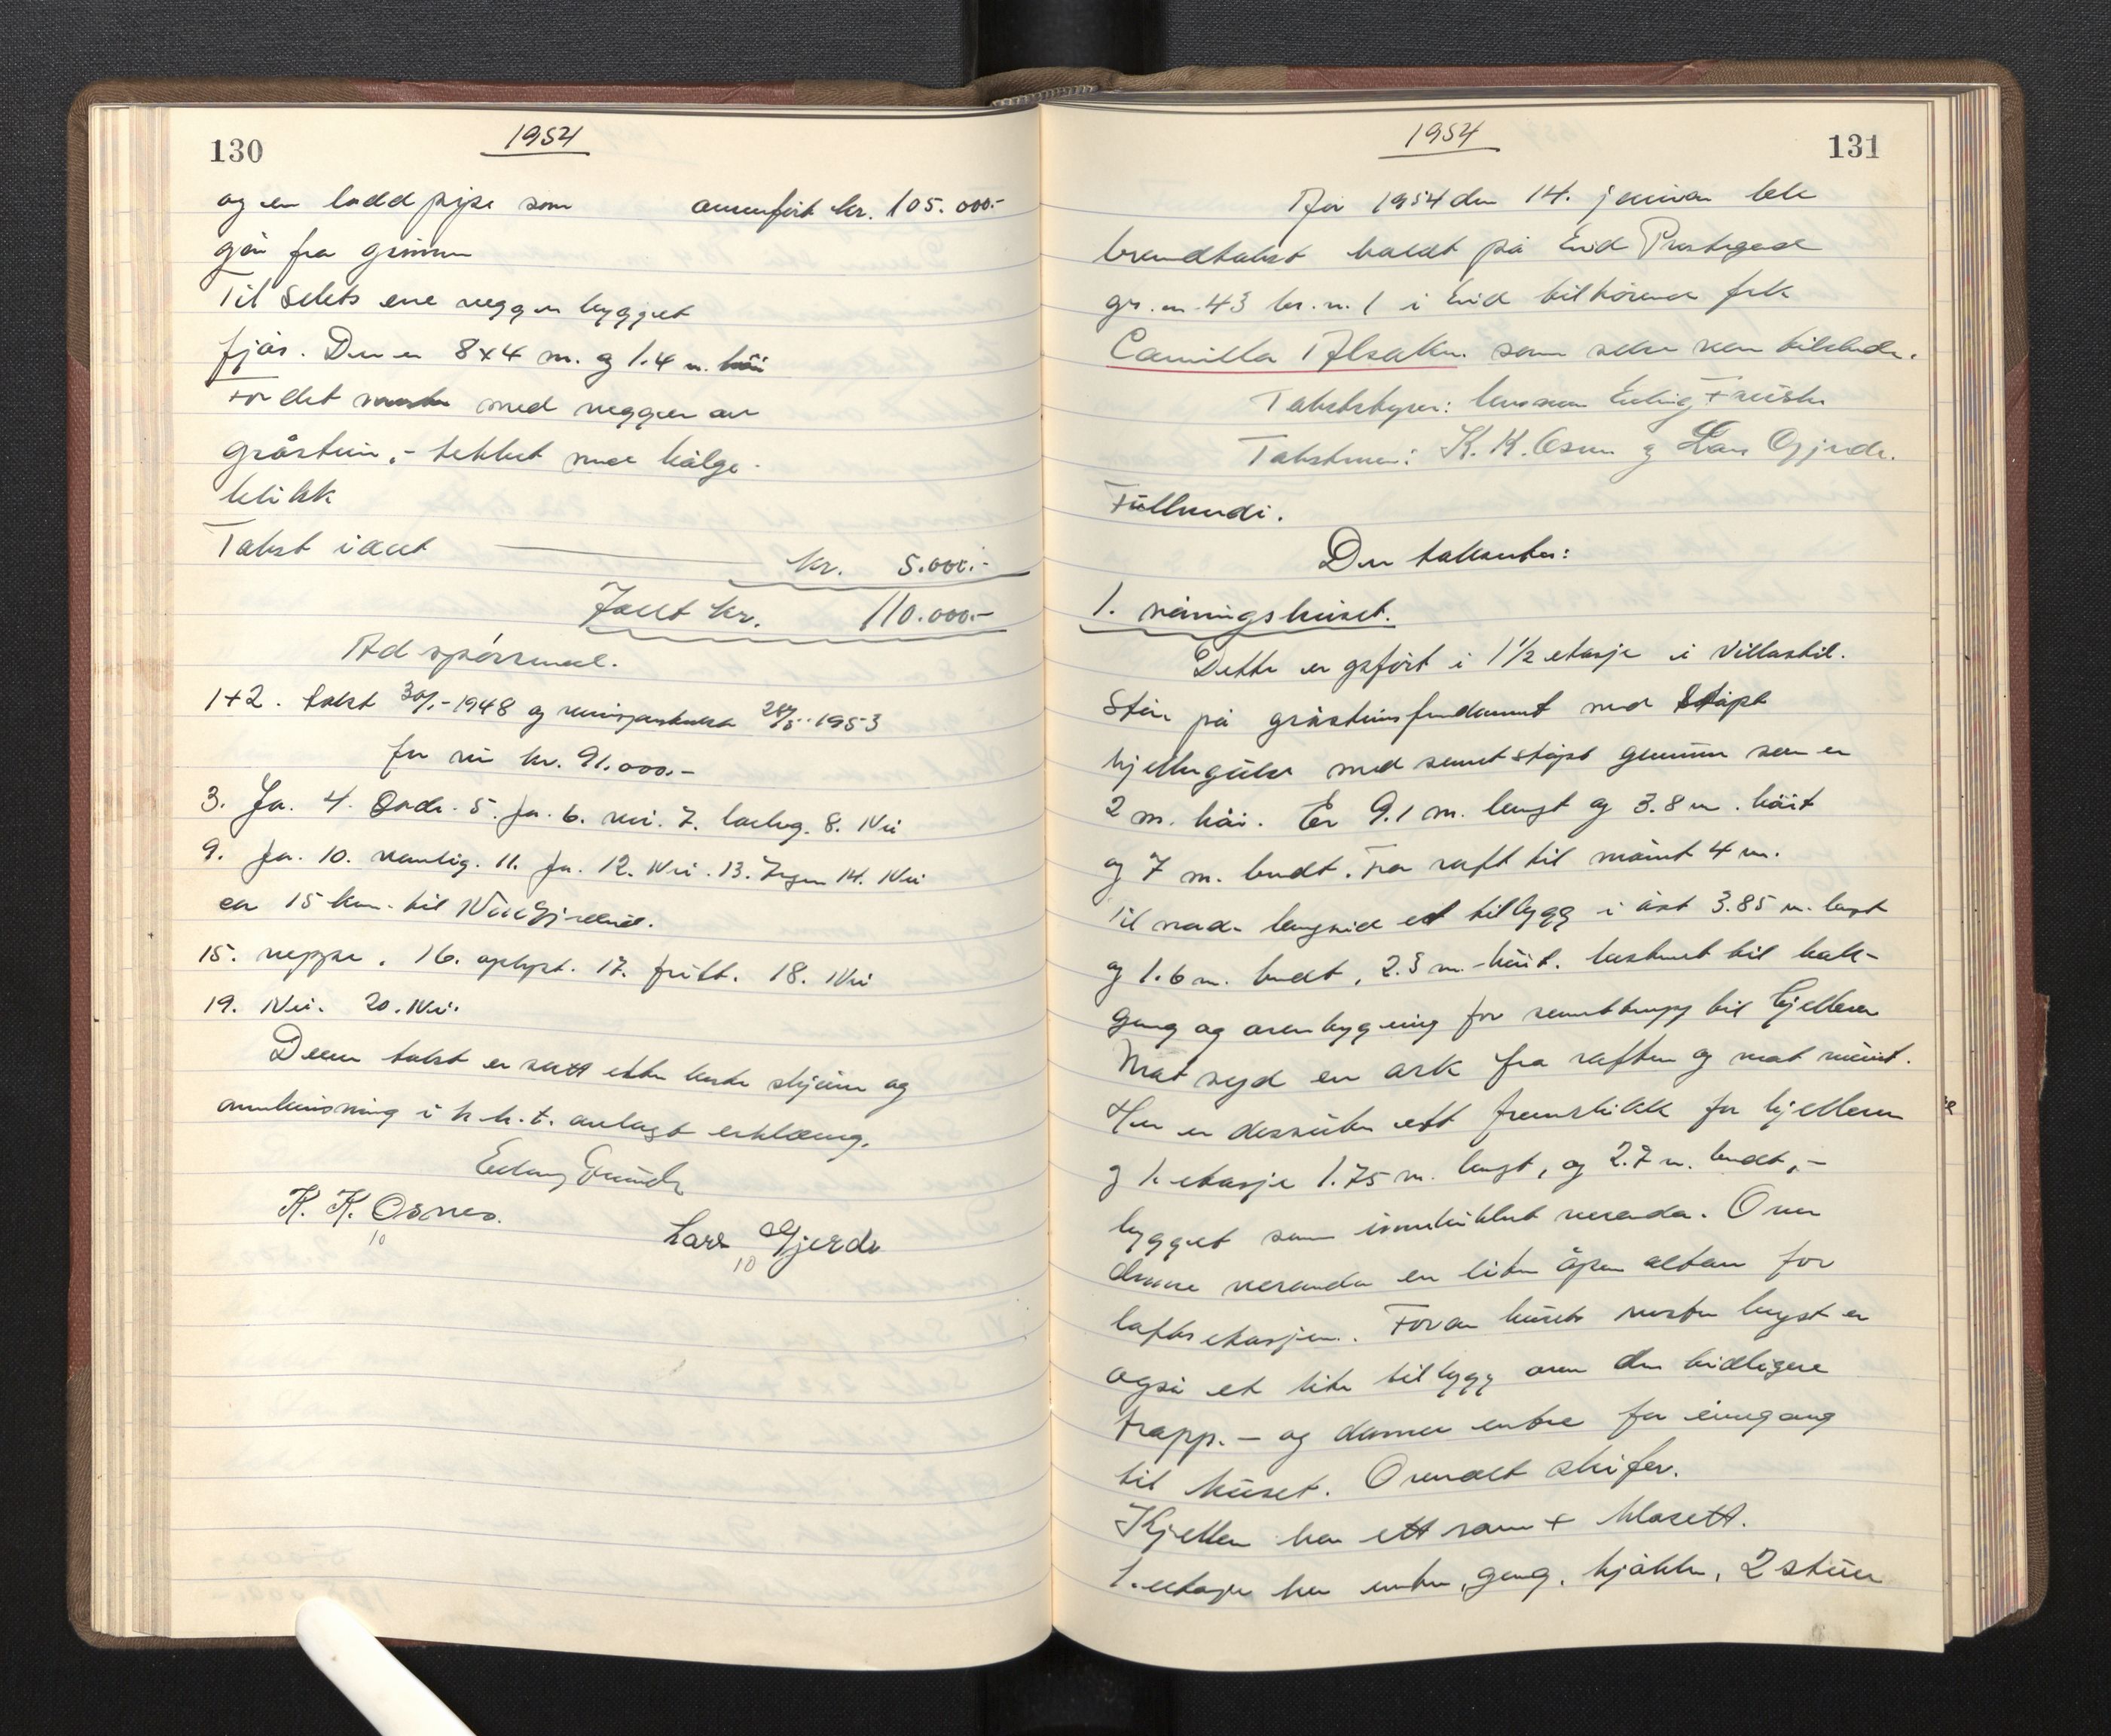 130
1954
og en ladd pipe som overført kr. 105.000.-
går fra grunnen
Til selets ene vegg er bygget
fjøs. Den er 8x4 m. og 1.4 m. høi
For det med vegger av
gråstein, - tekket med bølge-
blikk
Takst i alt kr. 5.000.-
I alt kr. 110.000.-
Ad spørsmål.
1+2. takst 1948 og 1953
for kr. 91.000.-
3. Ja. 4. Gode. 5. Ja. 6. Nei. 7. 8. Nei
9. Ja. 10. vanlig. 11. Ja. 12. Nei. 13. Ingen 14. Nei
ca 15 km. til
15. neppe. 16. oplyst. 17. fritt. 18. Nei
19. Nei. 20. Nei.
Denne takst er satt etter beste skjønn og
overbevisning i h.h.t. avlagt erklæring.
K. K. Osnes.
10
Lars Gjerde
10
1954
131
År 1954 den 14. januar ble
branntakst holdt på Eid Prestegard
gr. nr. 43 br. nr. 1 i Eid tilhørende frk
Camilla som selv var tilstede.
Takststyrer: lensmann Erling
Takstmenn: K. K. Osnes og Lars Gjerde.
Fullmindi.
Der taksertes:
1. våningshuset.
Dette er opført i 1½ etasje i villastil.
Står på gråsteinsfundament med støpt
kjellergulv med sementstøpt grunnmur som er
2 m. høi. Er 9.1 m. langt og 3.8 m. høit
og 7 m. bredt. Fra raft til møint 4 m.
Til nordre langside et tilbygg i øst 3.85 m. langt
og 1.6 m. bredt, 2.3 m. høit. bestemt til bak-
gang og overbygning for sementtrapp til kjelleren
Mot syd en ark fra raften og mot møint.
Her er dessuten ett fremstikk for kjelleren
og 1. etasje 1.75 m. langt, og 2.7 m. bredt, -
bygget som innebikket veranda. Over
denne veranda en liten åpen altan for
loftsetasjen. Foran husets vestre langst er
også et lite tilbygg over den tidligere
trapp. - og danner entre for inngang
til huset. Overalt skifer.
Kjelleren har ett rom + klosett.
1. etasje har entre, gang, kjøkken, 2 stuer